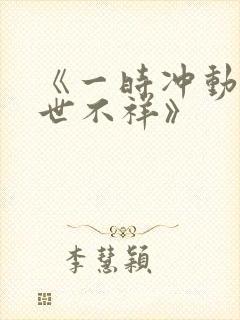 《一時冲動
世不祥》
李慧穎